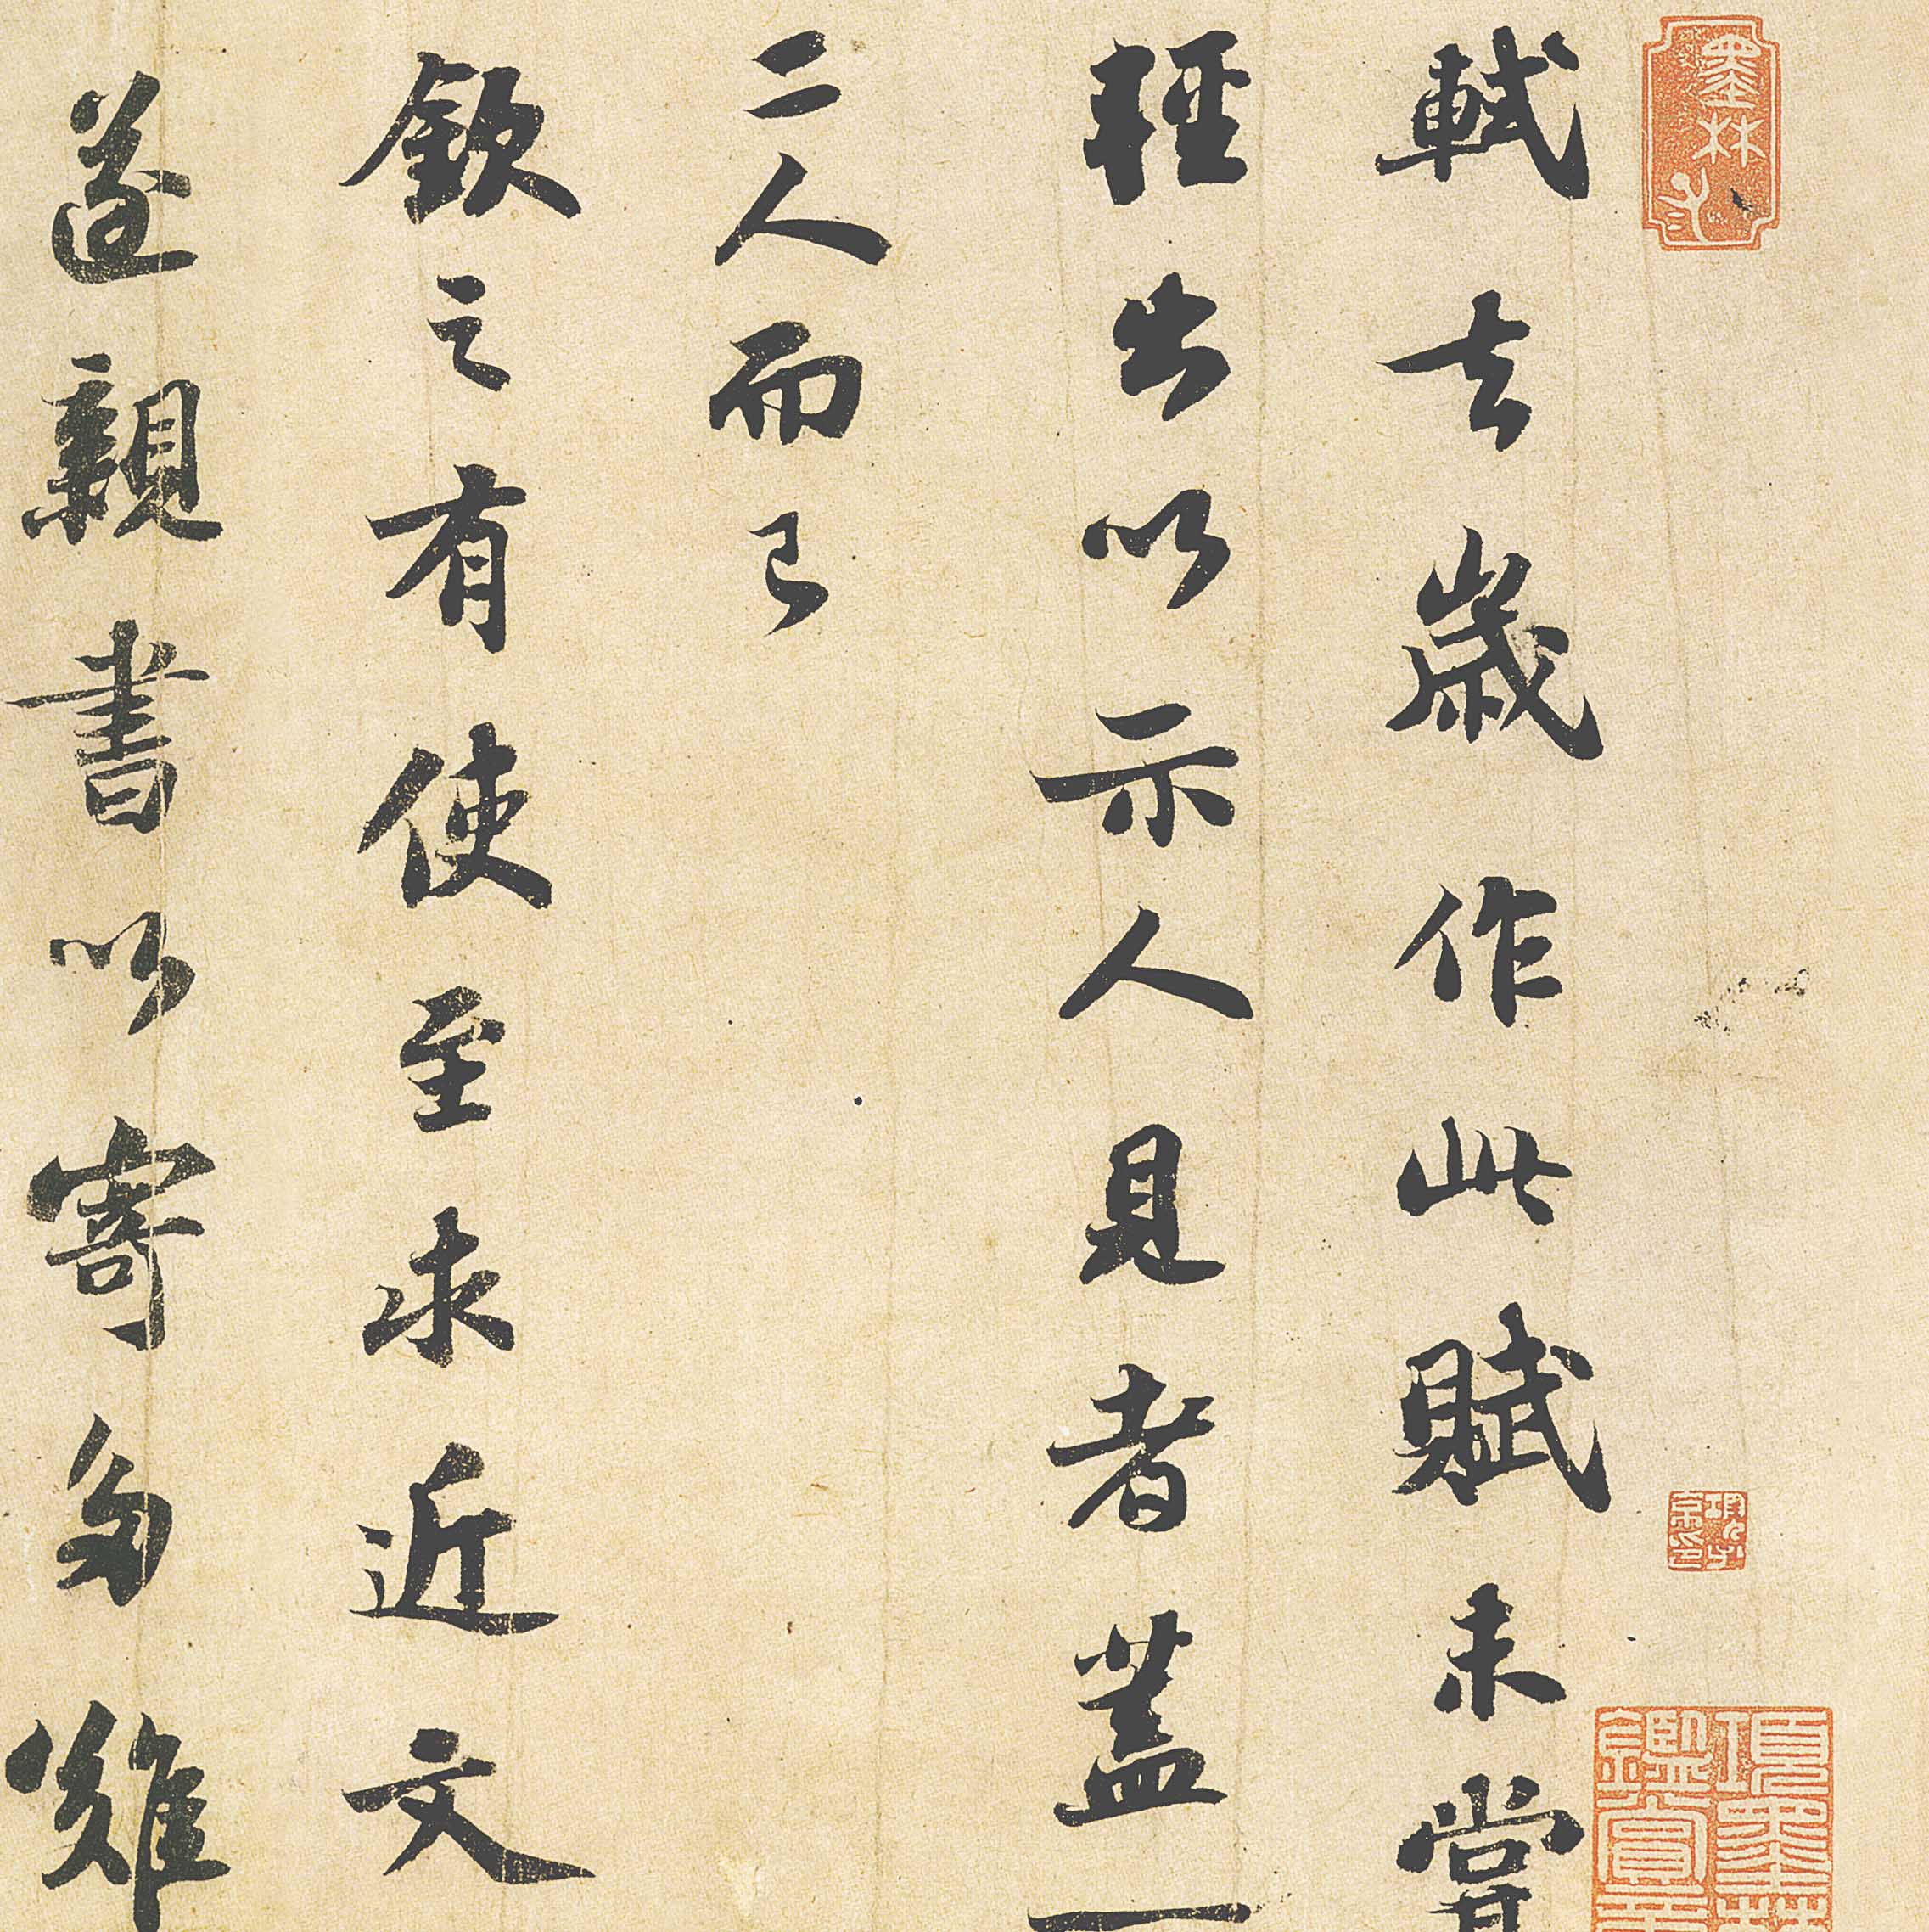 軾去歲作此賦未嘗
輕出以示人見者蓋一
二人而已
欽之有使至求近文
遂親書以寄多難
項墨林
鑑賞章